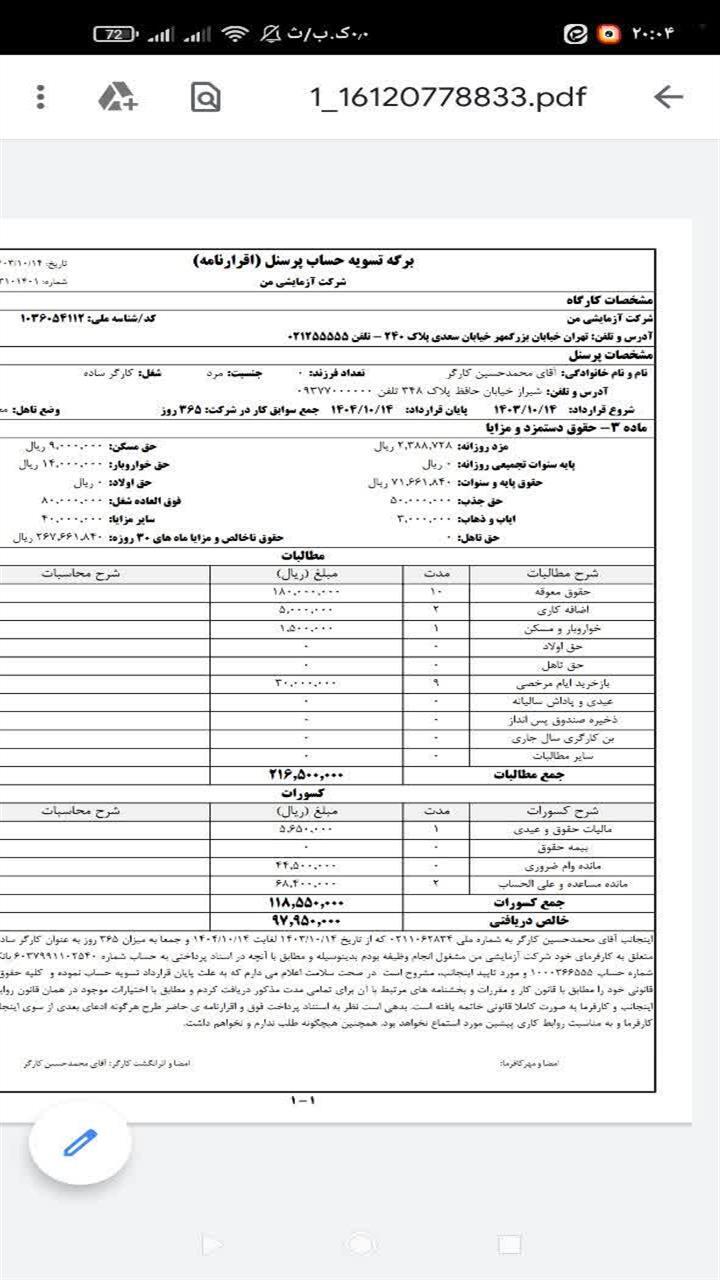 ۲۰:۰۴
۰٫۰ک.ب/ث
72
1_16120778833.pdf
برگه تسویه حساب پرسنل (اقرارنامه)
تاریخ: ۰۳/۱۰/۱۴
شرکت آزمایشی من
شماره: ۳۱۰۱۴۰۱
مشخصات کارگاه
شرکت آزمایشی من
کد/شناسه ملی: ۱۰۳۶۰۵۴۱۱۲
آدرس و تلفن: تهران خیابان بزرگمهر خیابان سعدی پلاک ۲۴۰ – تلفن ۰۲۱۲۵۵۵۵۵
مشخصات پرسنل
نام و نام خانوادگی: آقای محمدحسین کارگر تعداد فرزند: ۰ جنسیت: مرد شغل: کارگر ساده
آدرس و تلفن: شیراز خیابان حافظ پلاک ۳۴۸ تلفن ۰۹۳۷۷۰۰۰۰۰۰
شروع قرارداد: ۱۴۰۳/۱۰/۱۴ پایان قرارداد: ۱۴۰۴/۱۰/۱۴ جمع سوابق کار در شرکت: ۳۶۵ روز وضع تاهل:
ماده ۳- حقوق دستمزد و مزایا
مزد روزانه: ۲,۳۸۸,۷۲۸ ریال حق مسکن: ۹,۰۰۰,۰۰۰ ریال
پایه سنوات تجمیعی روزانه: ۰ ریال حق خواروبار: ۱۴,۰۰۰,۰۰۰ ریال
حقوق پایه و سنوات: ۷۱,۶۶۱,۸۴۰ ریال حق اولاد: ۰ ریال
حق جذب: ۵۰,۰۰۰,۰۰۰ فوق العاده شغل: ۸۰,۰۰۰,۰۰۰
ایاب و ذهاب: ۳,۰۰۰,۰۰۰ سایر مزایا: ۴۰,۰۰۰,۰۰۰
حق تاهل: ۰ حقوق ناخالص و مزایا ماه های ۳۰ روزه: ۲۶۷,۶۶۱,۸۴۰ ریال
مطالبات
شرح مطالبات مدت مبلغ (ریال) شرح محاسبات
حقوق معوقه ۱۰ ۱۸۰,۰۰۰,۰۰۰
اضافه کاری ۲ ۵,۰۰۰,۰۰۰
خواروبار و مسکن ۱ ۱,۵۰۰,۰۰۰
حق اولاد ۰ ۰
حق تاهل ۰ ۰
بازخرید ایام مرخصی ۹ ۳۰,۰۰۰,۰۰۰
عیدی و پاداش سالیانه ۰ ۰
ذخیره صندوق پس انداز ۰ ۰
بن کارگری سال جاری ۰ ۰
سایر مطالبات ۰ ۰
جمع مطالبات ۲۱۶,۵۰۰,۰۰۰
کسورات
شرح کسورات مدت مبلغ (ریال) شرح محاسبات
مالیات حقوق و عیدی ۱ ۵,۶۵۰,۰۰۰
بیمه حقوق ۰ ۰
مانده وام ضروری ۰ ۴۴,۵۰۰,۰۰۰
مانده مساعده و علی الحساب ۲ ۶۸,۴۰۰,۰۰۰
جمع کسورات ۱۱۸,۵۵۰,۰۰۰
خالص دریافتی ۹۷,۹۵۰,۰۰۰
اینجانب آقای محمدحسین کارگر به شماره ملی ۰۲۱۱۰۶۲۸۳۴ که از تاریخ ۱۴۰۳/۱۰/۱۴ لغایت ۱۴۰۴/۱۰/۱۴ و جمعا به میزان ۳۶۵ روز به عنوان کارگر
متعلق به کارفرمای خود شرکت آزمایشی من مشغول انجام وظیفه بودم بدینوسیله و مطابق با آنچه در اسناد پرداختی به حساب شماره ۶۰۳۷۹۹۱۱۰۲۵۴۰
شماره حساب ۱۰۰۰۳۶۶۵۵۵ و مورد تایید اینجانب، مشروح است در صحت سلامت اعلام می دارم که به علت پایان قرارداد تسویه حساب نموده و کلیه حقوق
قانونی خود را مطابق با قانون کار و مقررات و بخشنامه های مرتبط با آن برای تمامی مدت مذکور دریافت کردم و مطابق با اختیارات موجود در همان قانون
اینجانب و کارفرما به صورت کاملا قانونی خاتمه یافته است. بدهی است نظر به استناد پرداخت فوق و اقرارنامه ی حاضر طرح هرگونه ادعای بعدی از سوی
کارفرما و به مناسبت روابط کاری پیشین مورد استماع نخواهد بود. همچنین هیچگونه طلب ندارم و نخواهم داشت.
امضا و مهرکافرما: امضا و اثرانگشت کارگر: آقای محمدحسین کارگر
۱-۱